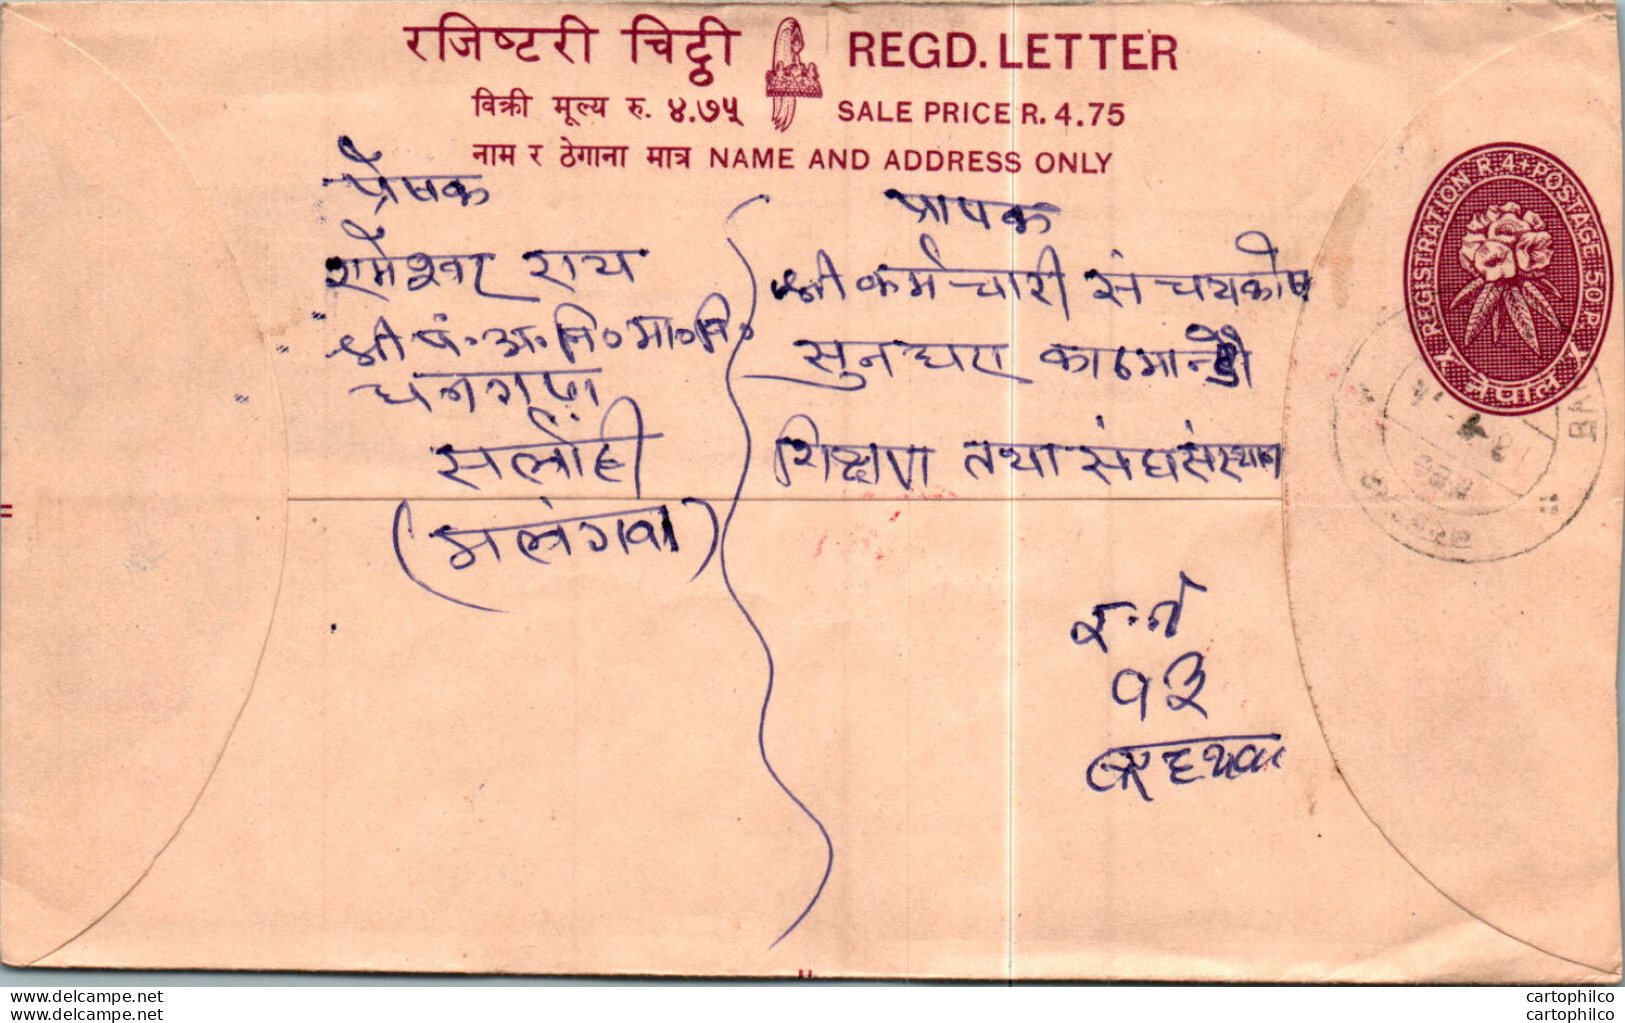 रजिष्टरी चिट्ठी REGD. LETTER
विक्री मूल्य रु. ४.७५ SALE PRICE R. 4.75
नाम र ठेगाना मात्र NAME AND ADDRESS ONLY
REGISTRATION R.4+POSTAGE 50 P.
नेपाल
प्रेषक
रामेश्वर राय
श्री पं. अ. नि० मा० वि०
सर्लाही
(मलंगवा)
प्रापक
श्री कर्मचारी संचयकोष
सुनधारा काठमान्डौ
शिक्षण तथा संघसंस्थान
१३
www.delcampe.net
www.delcampe.net
cartophilco
cartophilco